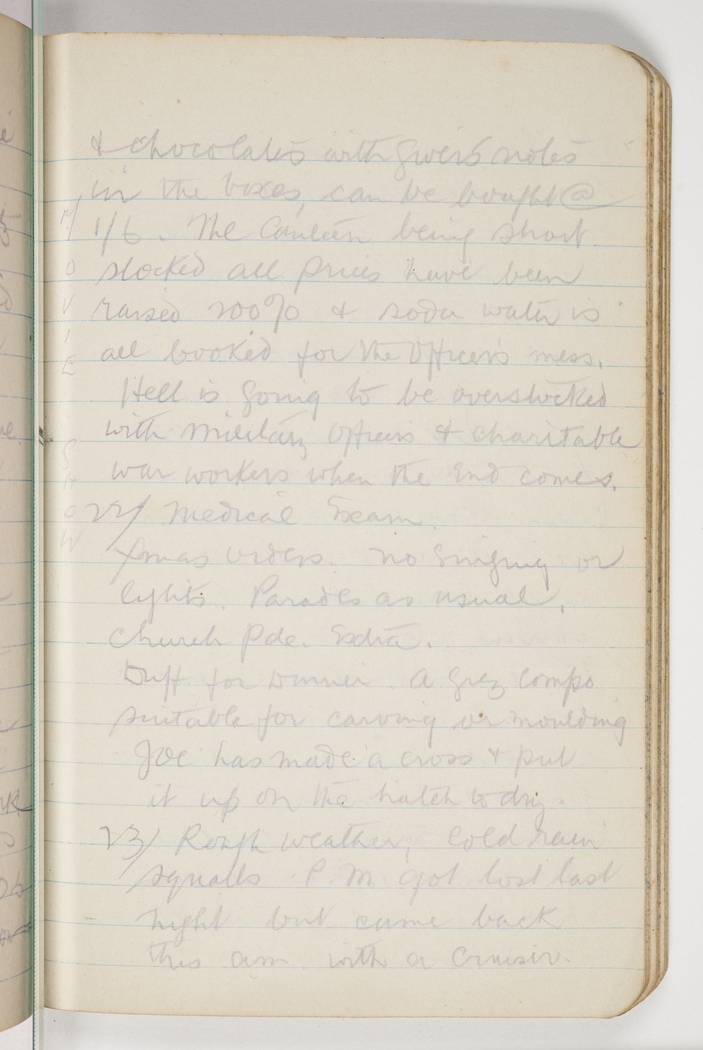 & chocolates with givers notes
in the boxes, can be bought @
1/6. The Canteen being short
stocked all prices have been
raised 200% & soda water is
all booked for the Officers mess.
Hell is going to be overstocked
with military Officers & charitable
war workers when the End comes.
22/ Medical Exam.
Xmas orders. No singing or
lights. Parades as usual.
Church Pde. Extra.
Duff for Dinner. A grey compo
suitable for carving or moulding
Joe has made a cross & put
it up on the hatch to dry.
23/ Rough weather, cold rain
squalls. P.M. got lost last
night but came back
this am with a Cruiser.
MOVIE SHOW